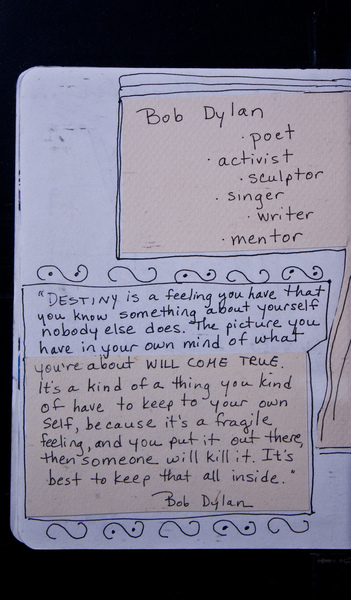 Bob Dylan
· poet
· activist
· sculptor
· singer
· writer
· mentor
"DESTINY is a feeling you have that
you know something about yourself
nobody else does. The picture you
have in your own mind of what
you're about WILL COME TRUE.
It's a kind of a thing you kind
of have to keep to your own
self, because it's a fragile
feeling, and you put it out there,
then someone will kill it. It's
best to keep that all inside."
Bob Dylan